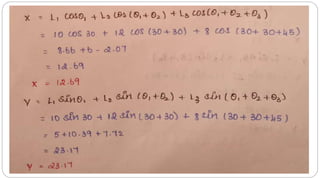 X = L₁ cosθ₁ + L₂ cos (θ₁+θ₂) + L₃ cos(θ₁+θ₂+θ₃)
= 10 cos 30 + 12 cos (30+30) + 8 cos (30+30+45)
= 8.66 + 6 - 2.07
= 12.59
X = 12.59
Y = L₁ sinθ₁ + L₂ sin (θ₁+θ₂) + L₃ sin (θ₁+θ₂+θ₃)
= 10 sin 30 + 12 sin (30+30) + 8 sin (30+30+45)
= 5+10.39+7.72
= 23.17
Y = 23.17